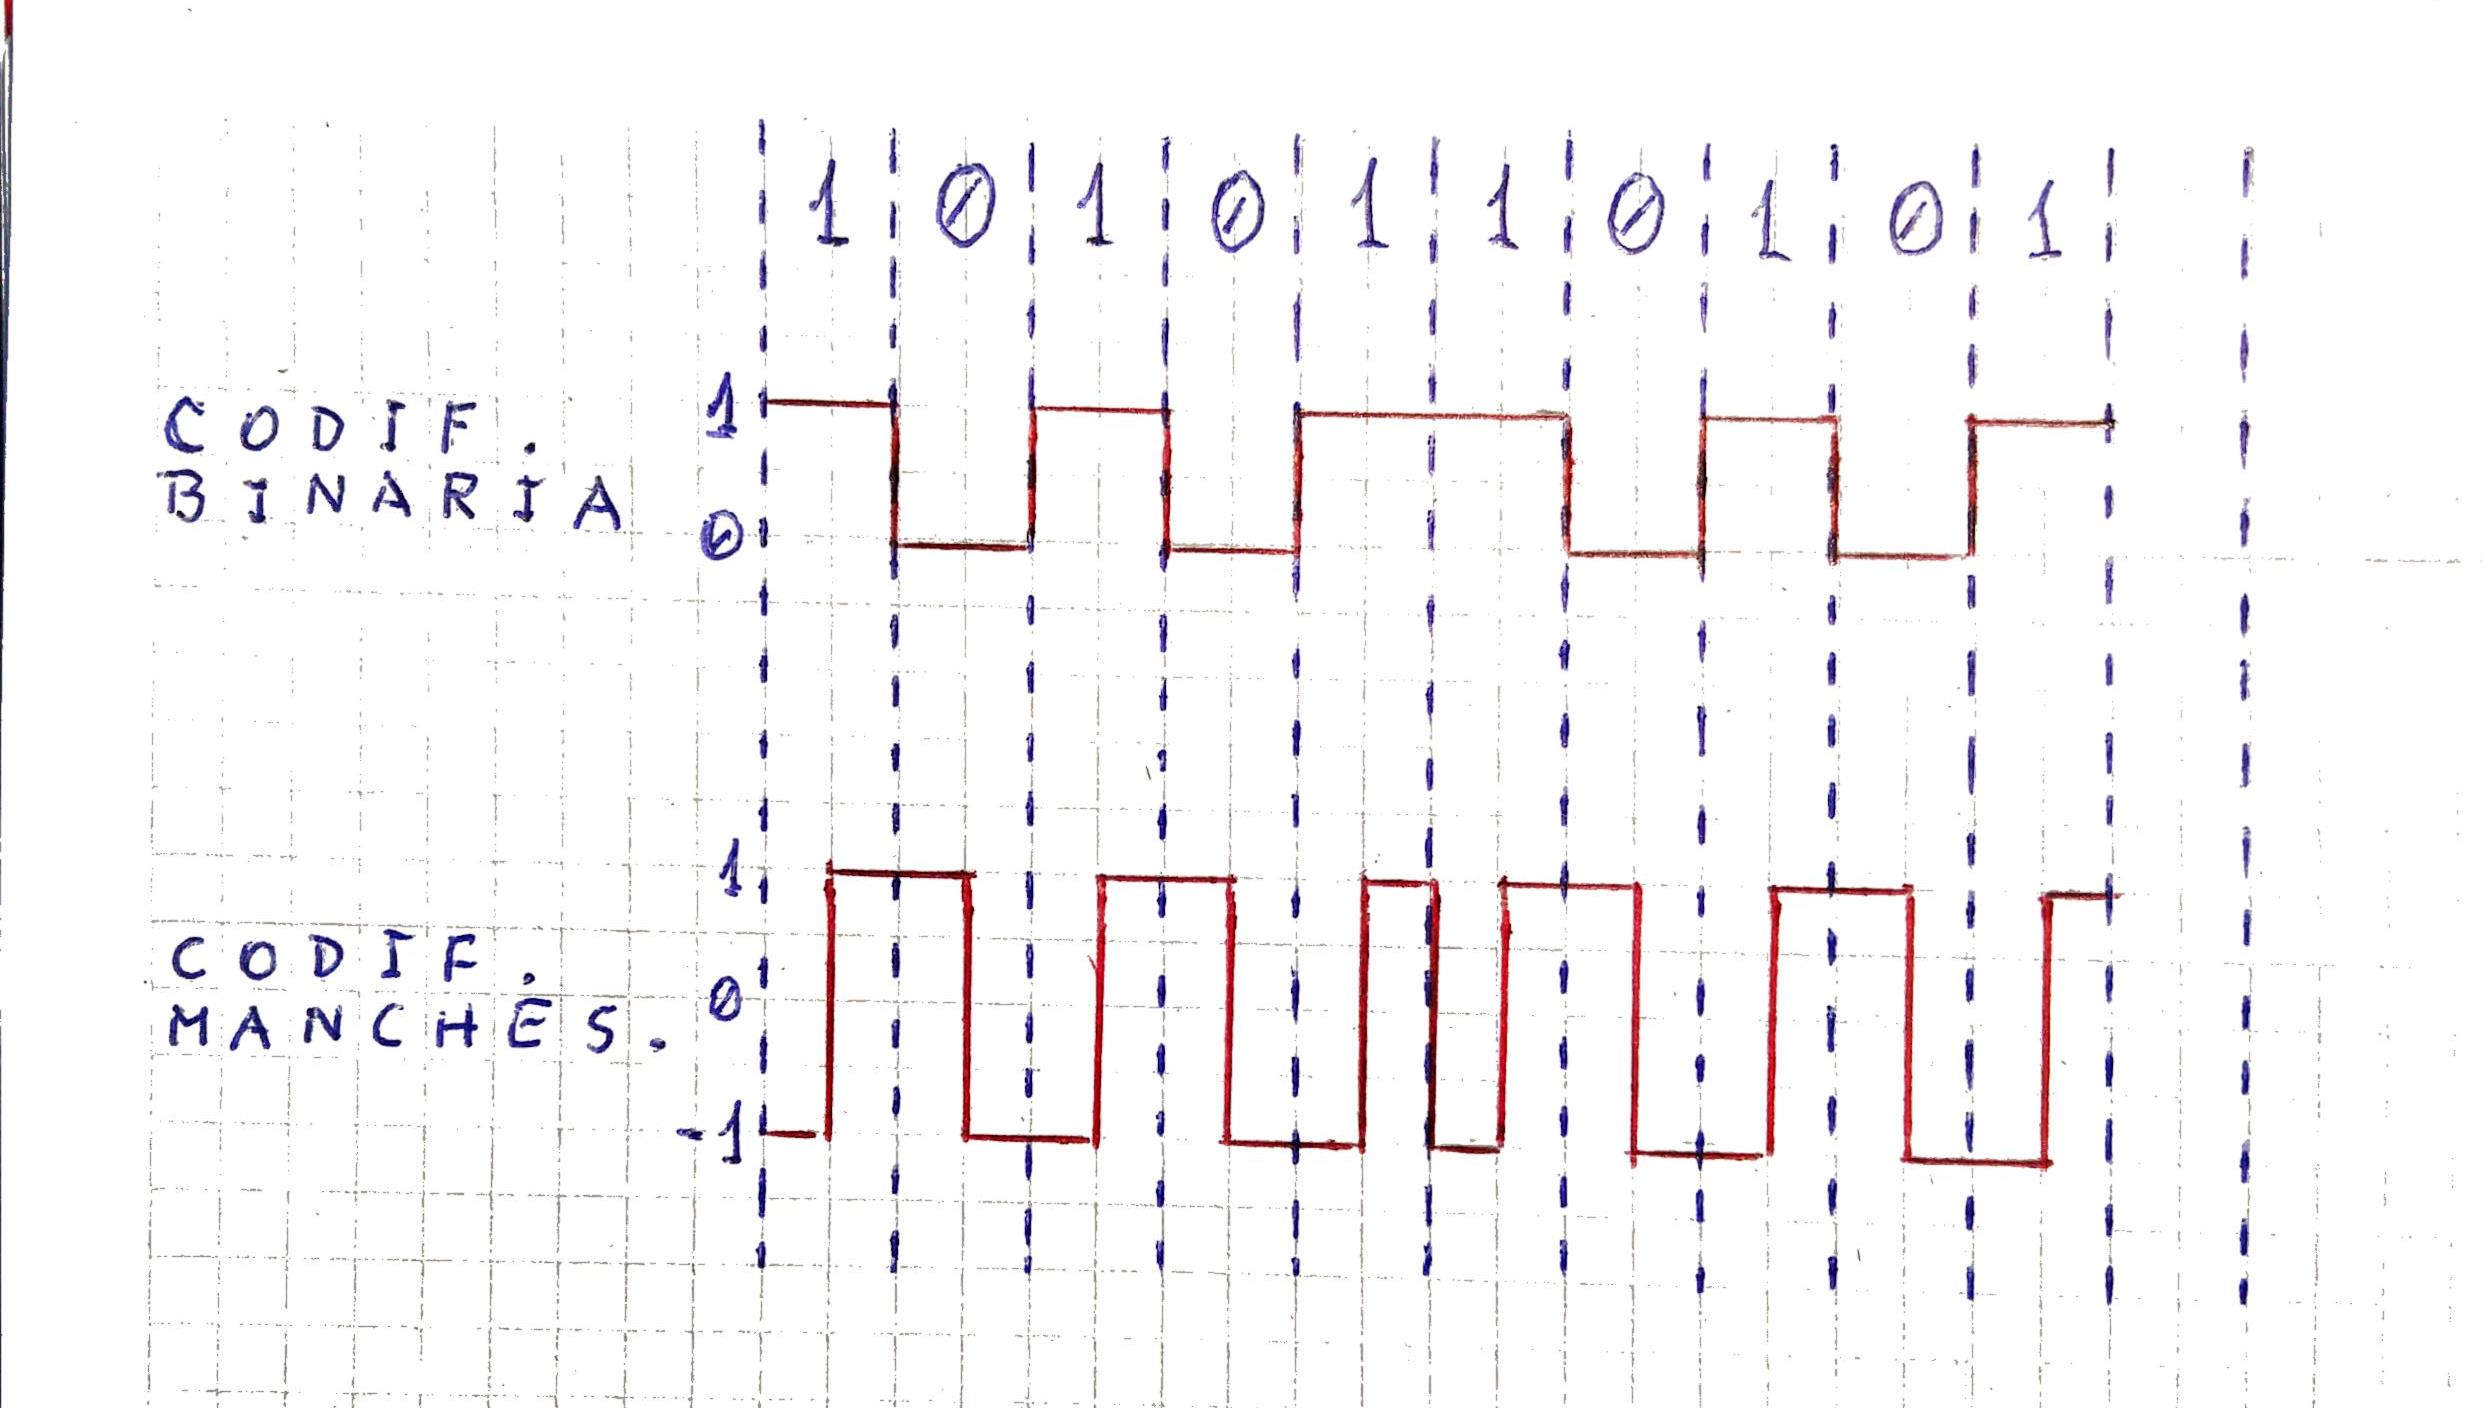 1 0 1 0 1 1 0 1 0 1
1
CODIF.
BINARIA
0
1
CODIF.
0
MANCHES.
-1